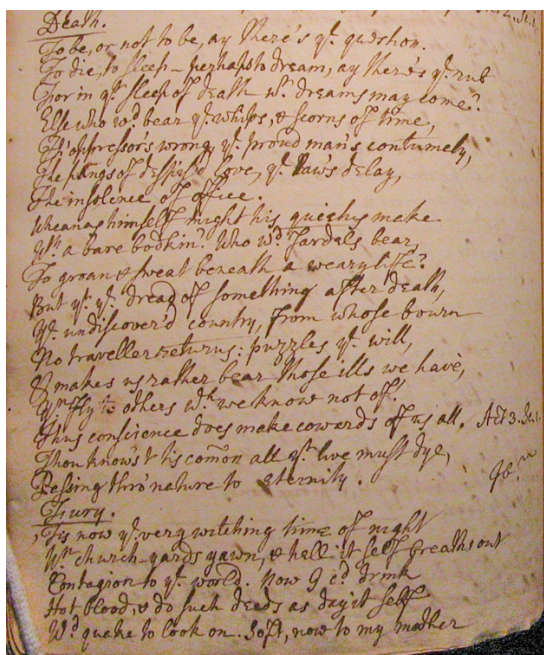 2. Sc. 1.
Death.
To be, or not to be, ay there's yt. question.
To die, to sleep – perhaps to dream, ay there's ye. rub
For in yt. sleep of death wt. dreams may come?
Else who wd. bear ye. whips, & scorns of time,
Th' oppressor's wrong, ye. proud man's contumely,
The pangs of despised love, ye. law's delay,
The insolence of office.
Wheanas himself might his quiethus make
Wth. a bare bodkin? Who wd. fardels bear,
To groan & sweat beneath a weary life?
But yt. ye. dread of something after death,
Ye. undiscover'd country, from whose bourn
No traveller returns: puzzles ye. will,
& makes us rather bear those ills we have,
Yn. fly to others wh. we know not of.
Thus conscience does make cowards of us all. Act 3. Sc. 1.
Thou know'st tis com̄on all yt. live must dye,
Passing thro' nature to eternity.
Ib.
Fury.
'Tis now ye. very witching time of night
Wn. church yards yawn, & hell it self breaths out
Contagion to ye. world. Now I cd. drink
Hot blood, & do such deeds as day it self
Wd. quake to look on. Soft, now to my mother